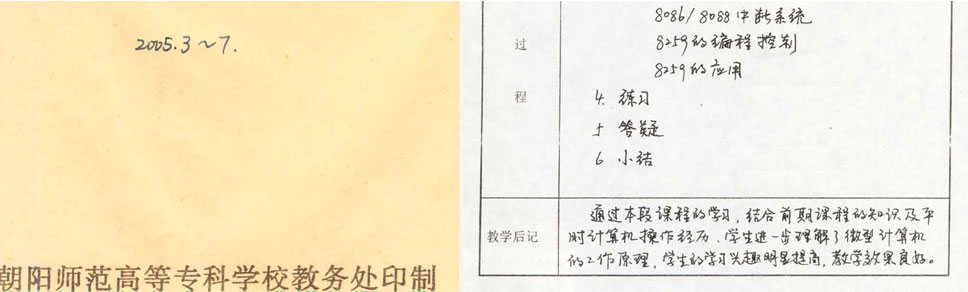 2005.3～7.
朝阳师范高等专科学校教务处印制
过
程
8086/8088中断系统
8259的编程控制
8259的应用
4. 练习
5 答疑
6 小结
教学后记
通过本段课程的学习，结合前期课程的知识及平
时计算机操作经历，学生进一步理解了微型计算机
的工作原理，学生的学习兴趣明显提高，教学效果良好。